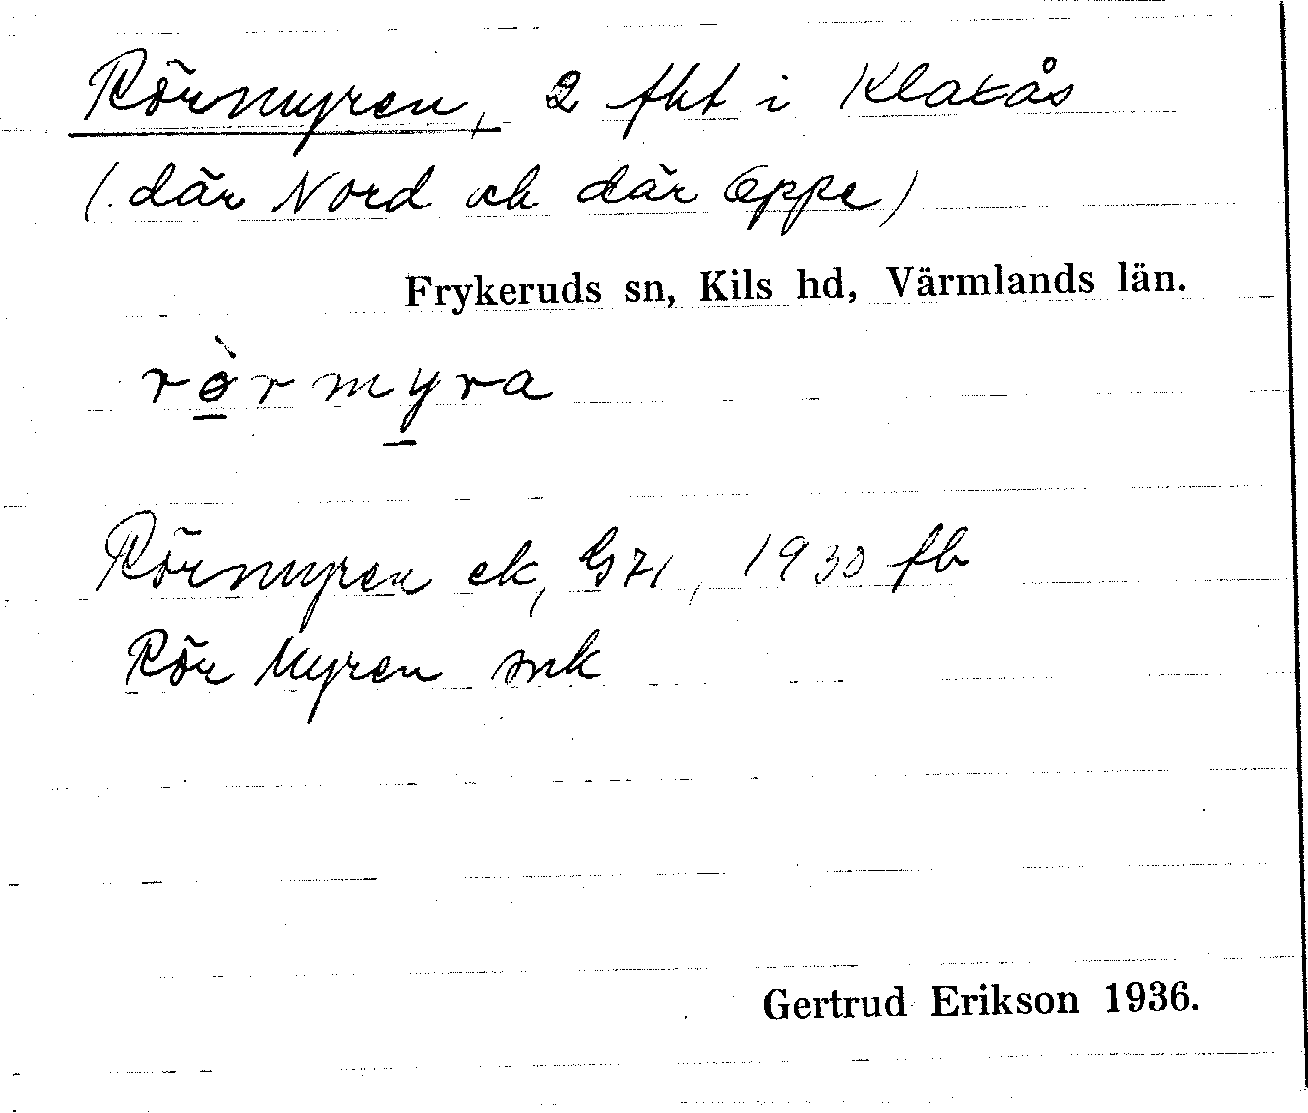 Rörmyren, 2 fht i Klakås
(där Nord och där Oppe)
Frykeruds sn, Kils hd, Värmlands län.
rørmyra
Rörmyren ek, G71, 1930 fb
Rör Myren snk
Gertrud Erikson 1936.